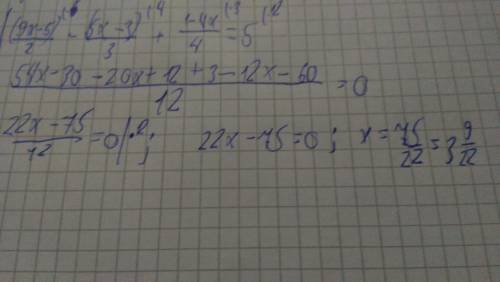 (9x-5)/2 ⁽⁶ - (5x-3)/3 ⁽⁴ + 1-4x/4 ⁽³ = 5 ⁽¹²
54x-30-20x+12+3-12x-60/12 = 0
22x-75/12 = 0 | ; 22x-75=0 ; x = 75/22 = 3 9/22